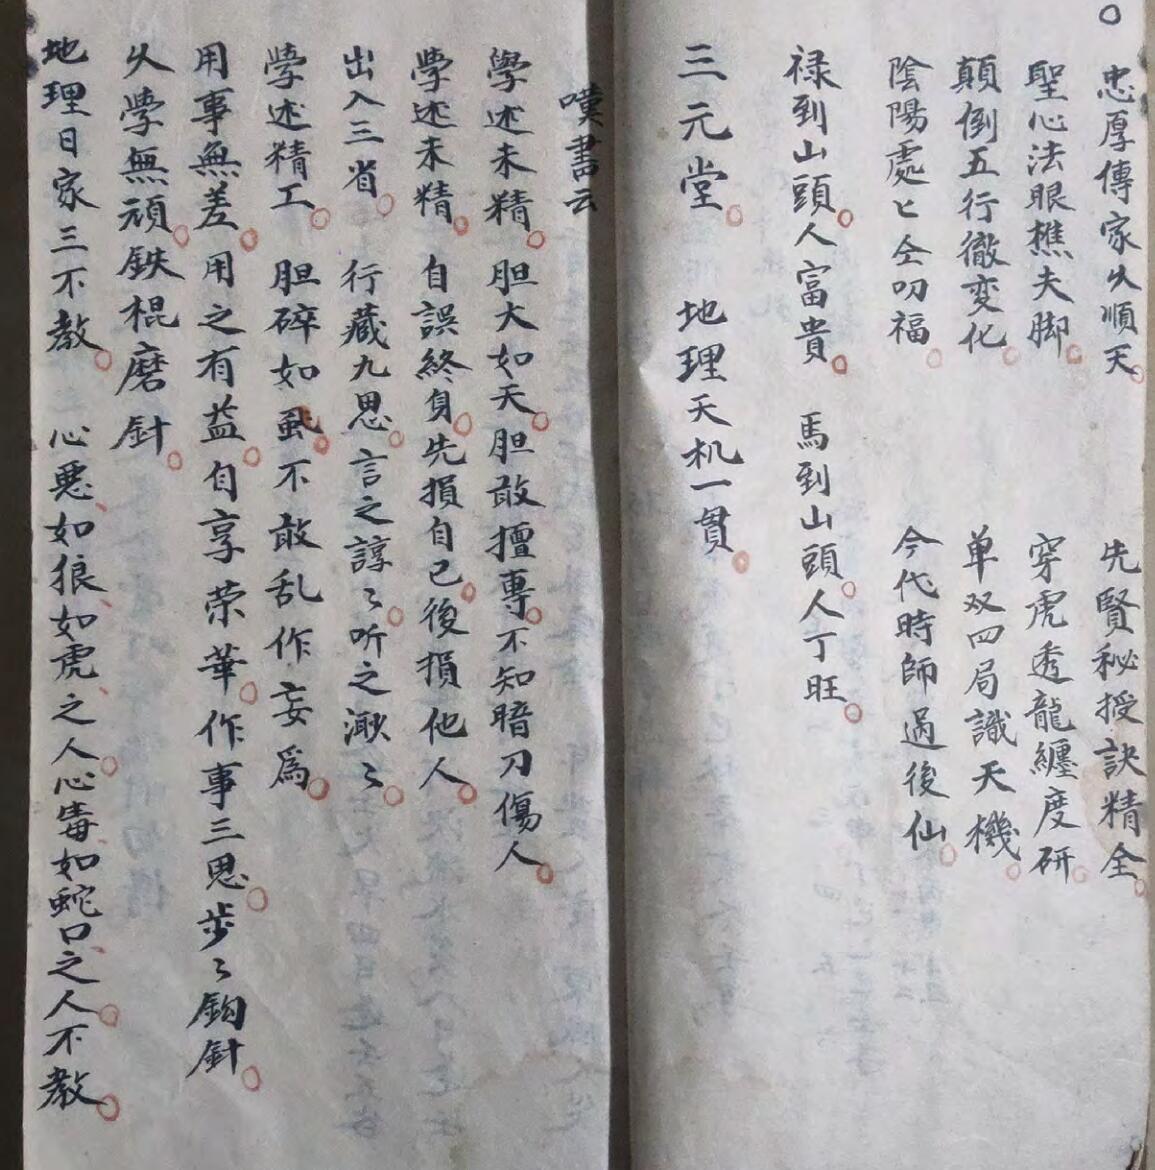 忠厚傳家久順天。先賢秘授訣精全。
聖心法眼樵夫脚。穿虎透龍纏度研。
顛倒五行徹変化。单双四局識天機。
陰陽處匕仝叨福。今代時師過後仙。
禄到山頭。人富貴。馬到山頭。人丁旺。
三元堂。地理天机一貫。
嘆書云
學述未精。胆大如天。胆敢擅專。不知暗刀傷人。
學述未精。自誤終身。先損自己。後損他人。
出入三省。行藏九思。言之諄々。听之漱々。
學述精工。胆碎如虱。不敢乱作妄爲。
用事無差。用之有益。自享荣華。作事三思。步々鈎針。
久學無頑。鉄棍磨針。
地理日家三不教。心悪、如狼、如虎、之人。心毒、如蛇口、之人。不教。